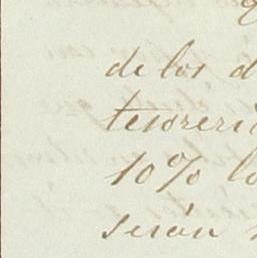 de los d
tesoreri
10% lo
serán